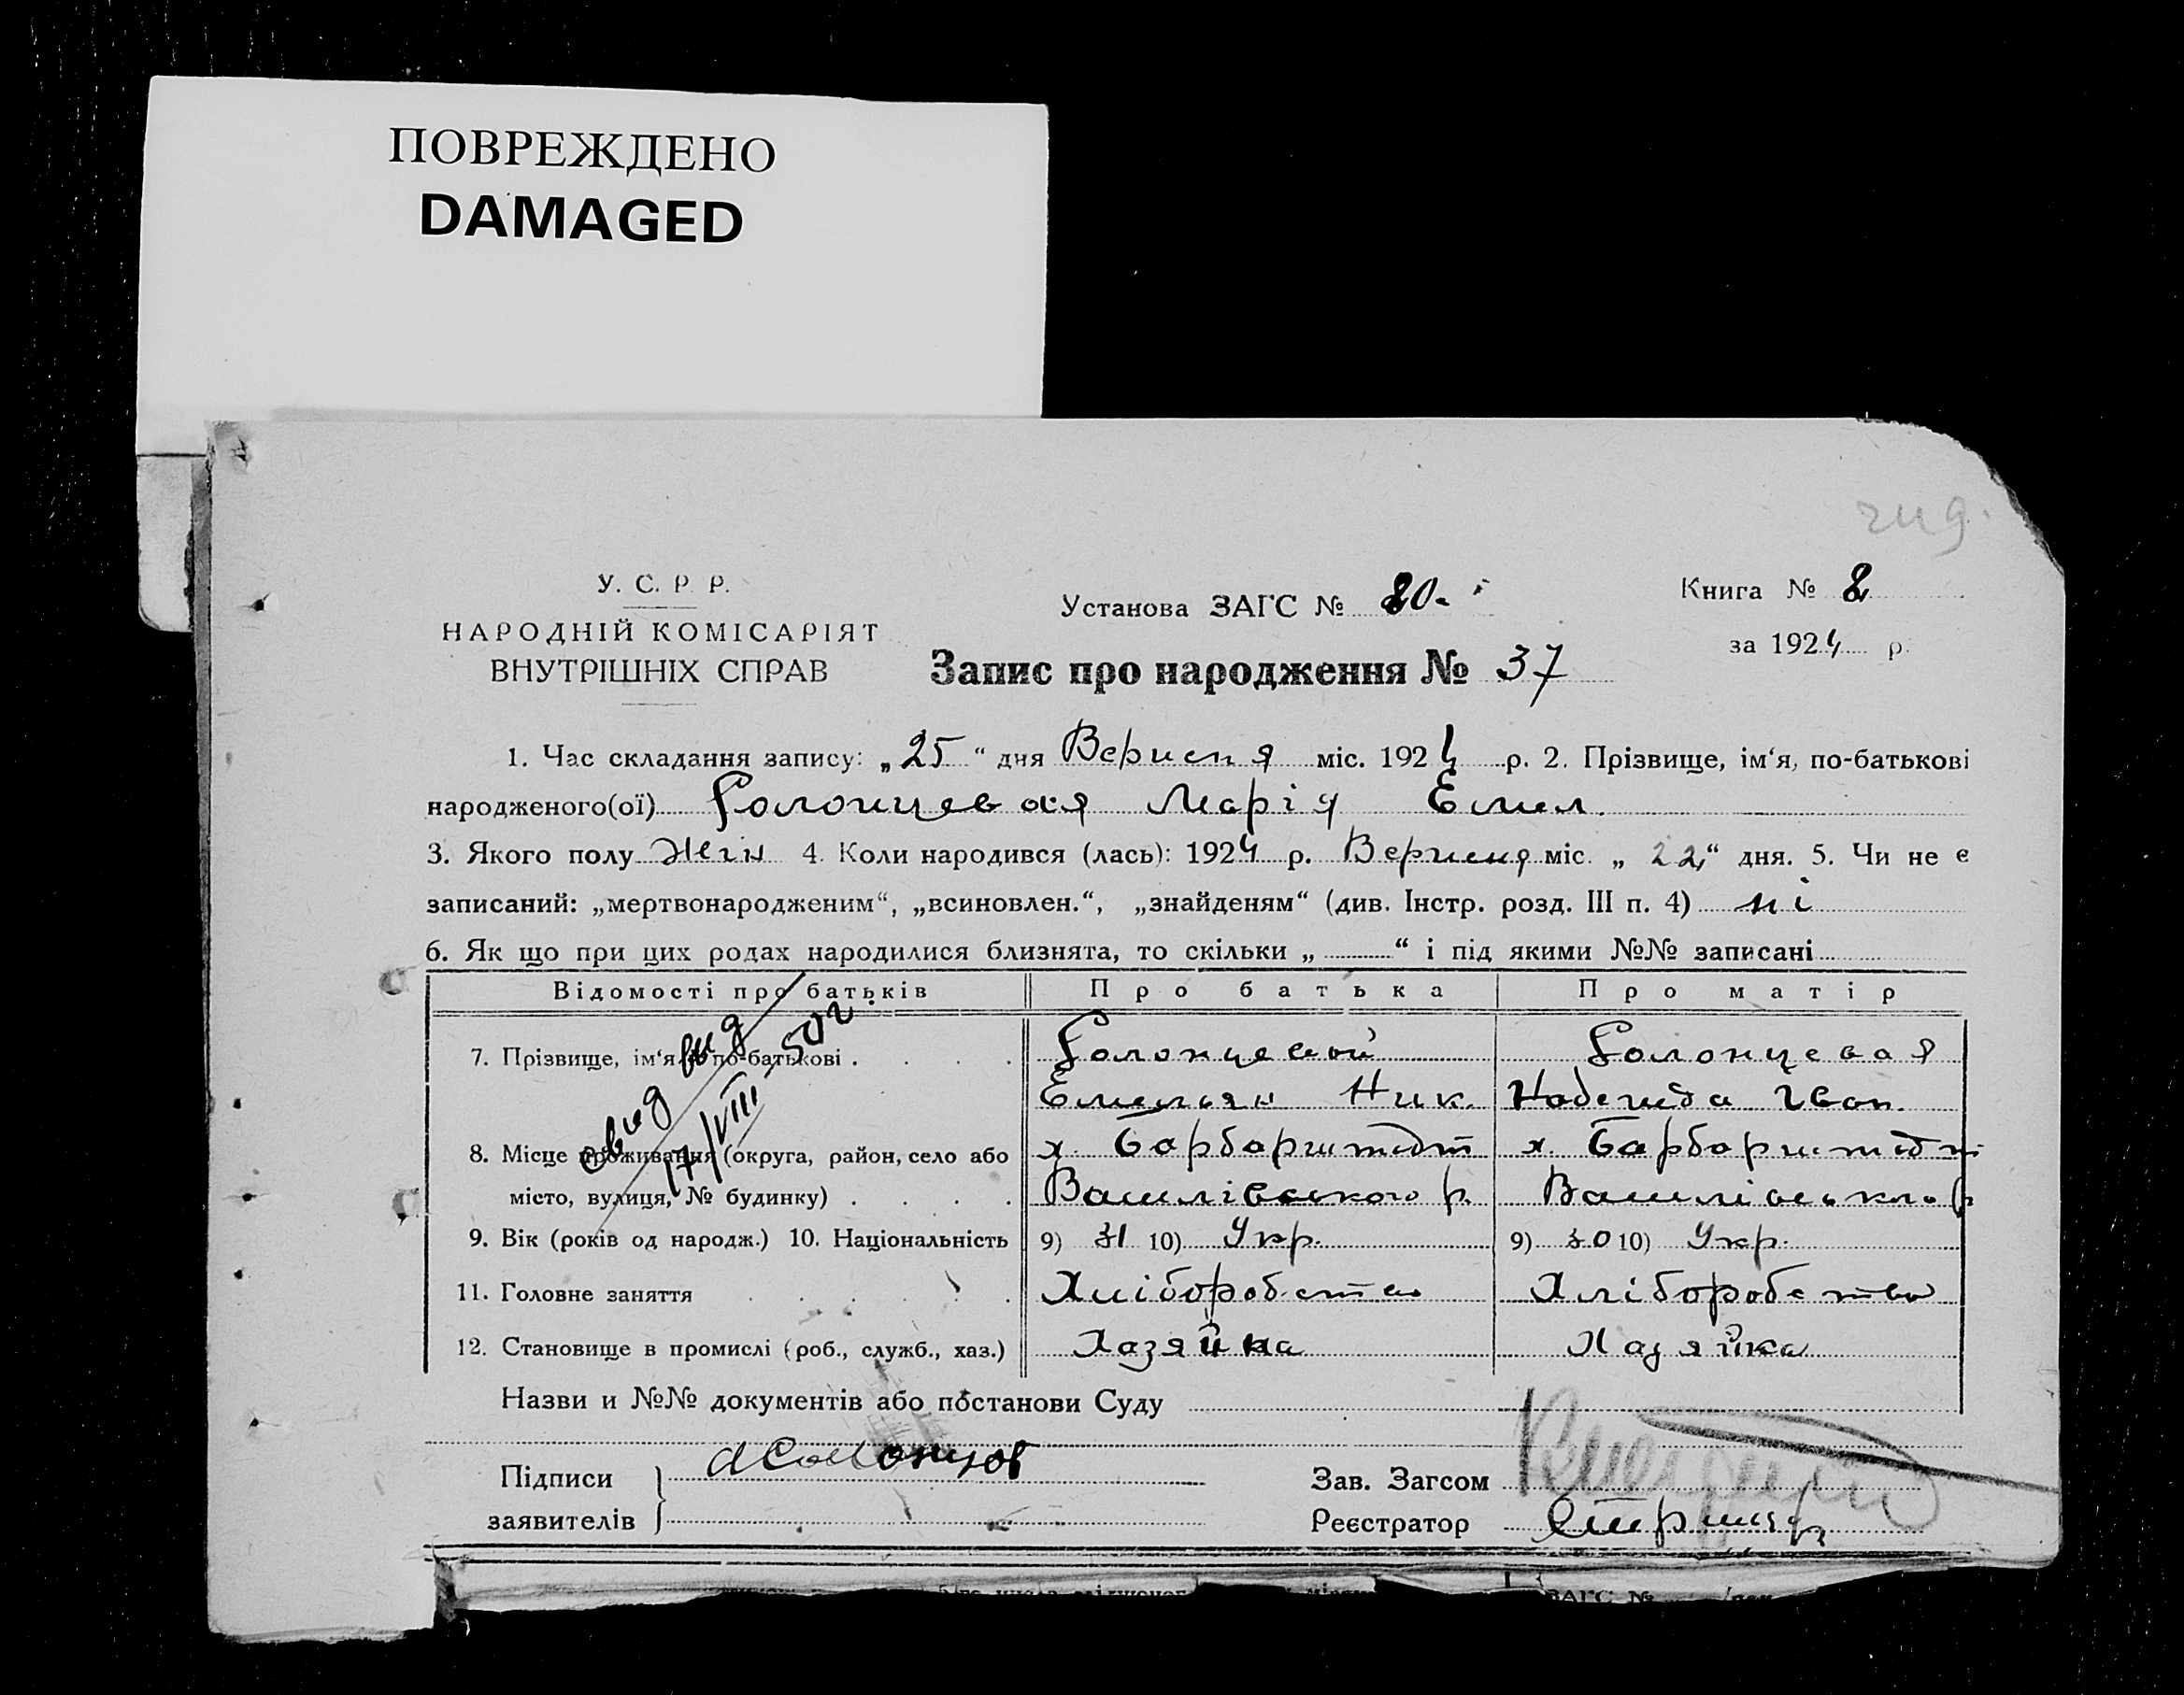 ПОВРЕЖДЕНО
DAMAGED
У. С. Р. Р.
НАРОДНІЙ КОМІСАРІЯТ
ВНУТРІШНІХ СПРАВ
Установа ЗАГС № 20.
Книга № 2
за 1924 р.
Запис про народження № 37
1. Час складання запису: „25“ дня Вересня міс. 1924 р. 2. Прізвище, ім‘я, по-батькові
народженого(ої) Голонцевая Марія Емел.
3. Якого полу жін 4. Коли народився (лась): 1924 р. Вересня міс. „22“ дня. 5. Чи не є
записаний: „мертвонародженим“, „всиновлен.“, „знайденям“ (див. Інстр. розд. III п. 4) ні
6. Як що при цих родах народилися близнята, то скільки „ “ і під якими №№ записані
Відомості про батьків Про батька Про матір
7. Прізвище, ім‘я по-батькові Голонцевой Голонцевая
Емельян Ник. Надежда Иван.
8. Місце проживання (округа, район, село або х. Барбарштадт х. Барбарштадт
місто, вулиця, № будинку) Василівського р. Василівського р
9. Вік (років од народж.) 10. Національність 9) 31 10) Укр. 9) 30 10) Укр.
11. Головне заняття Хліборобство Хліборобство
12. Становище в промислі (роб., служб., хаз.) Хазяйка Хазяйка
свид вид
17/VIII 50 г.
Назви и №№ документів або постанови Суду
Підписи
заявителів
Зав. Загсом
Реєстратор
ЗАГС №